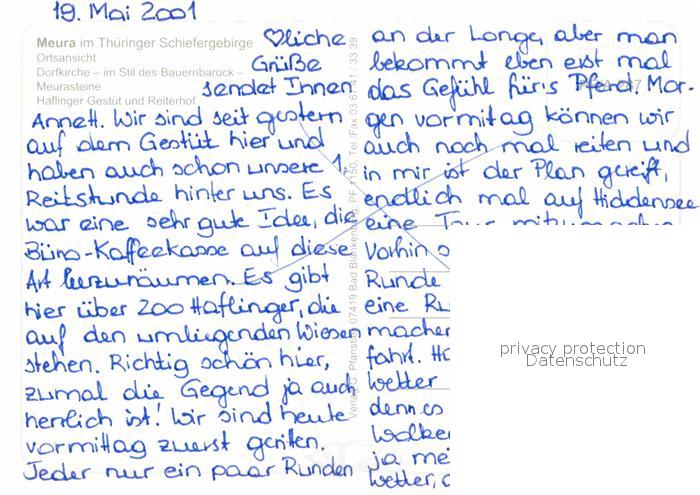 19. Mai 2001
Meura im Thüringer Schiefergebirge
Ortsansicht
Dorfkirche – im Stil des Bauernbarock –
Meurasteine
Haflinger Gestüt und Reiterhof
♡liche
Grüße
sendet Ihnen
Annett. Wir sind seit gestern
auf dem Gestüt hier und
haben auch schon unsere 1.
Reitstunde hinter uns. Es
war eine sehr gute Idee, die
Büro-Kaffeekasse auf diese
Art leerzuräumen. Es gibt
hier über 200 Haflinger, die
auf den umliegenden Wiesen
stehen. Richtig schön hier,
zumal die Gegend ja auch
herrlich ist! Wir sind heute
vormittag zuerst geritten.
Jeder nur ein paar Runden
an der Longe, aber man
bekommt eben erst mal
das Gefühl für's Pferd. Mor-
gen vormitag können wir
auch noch mal reiten und
in mir ist der Plan gereift,
endlich mal auf Hiddensee
eine Tour mitzumachen
Vorhin
Runde
eine
machen
fahrt.
Wetter
denn es
Wolke
ja
Wetter,
privacy protection
Datenschutz